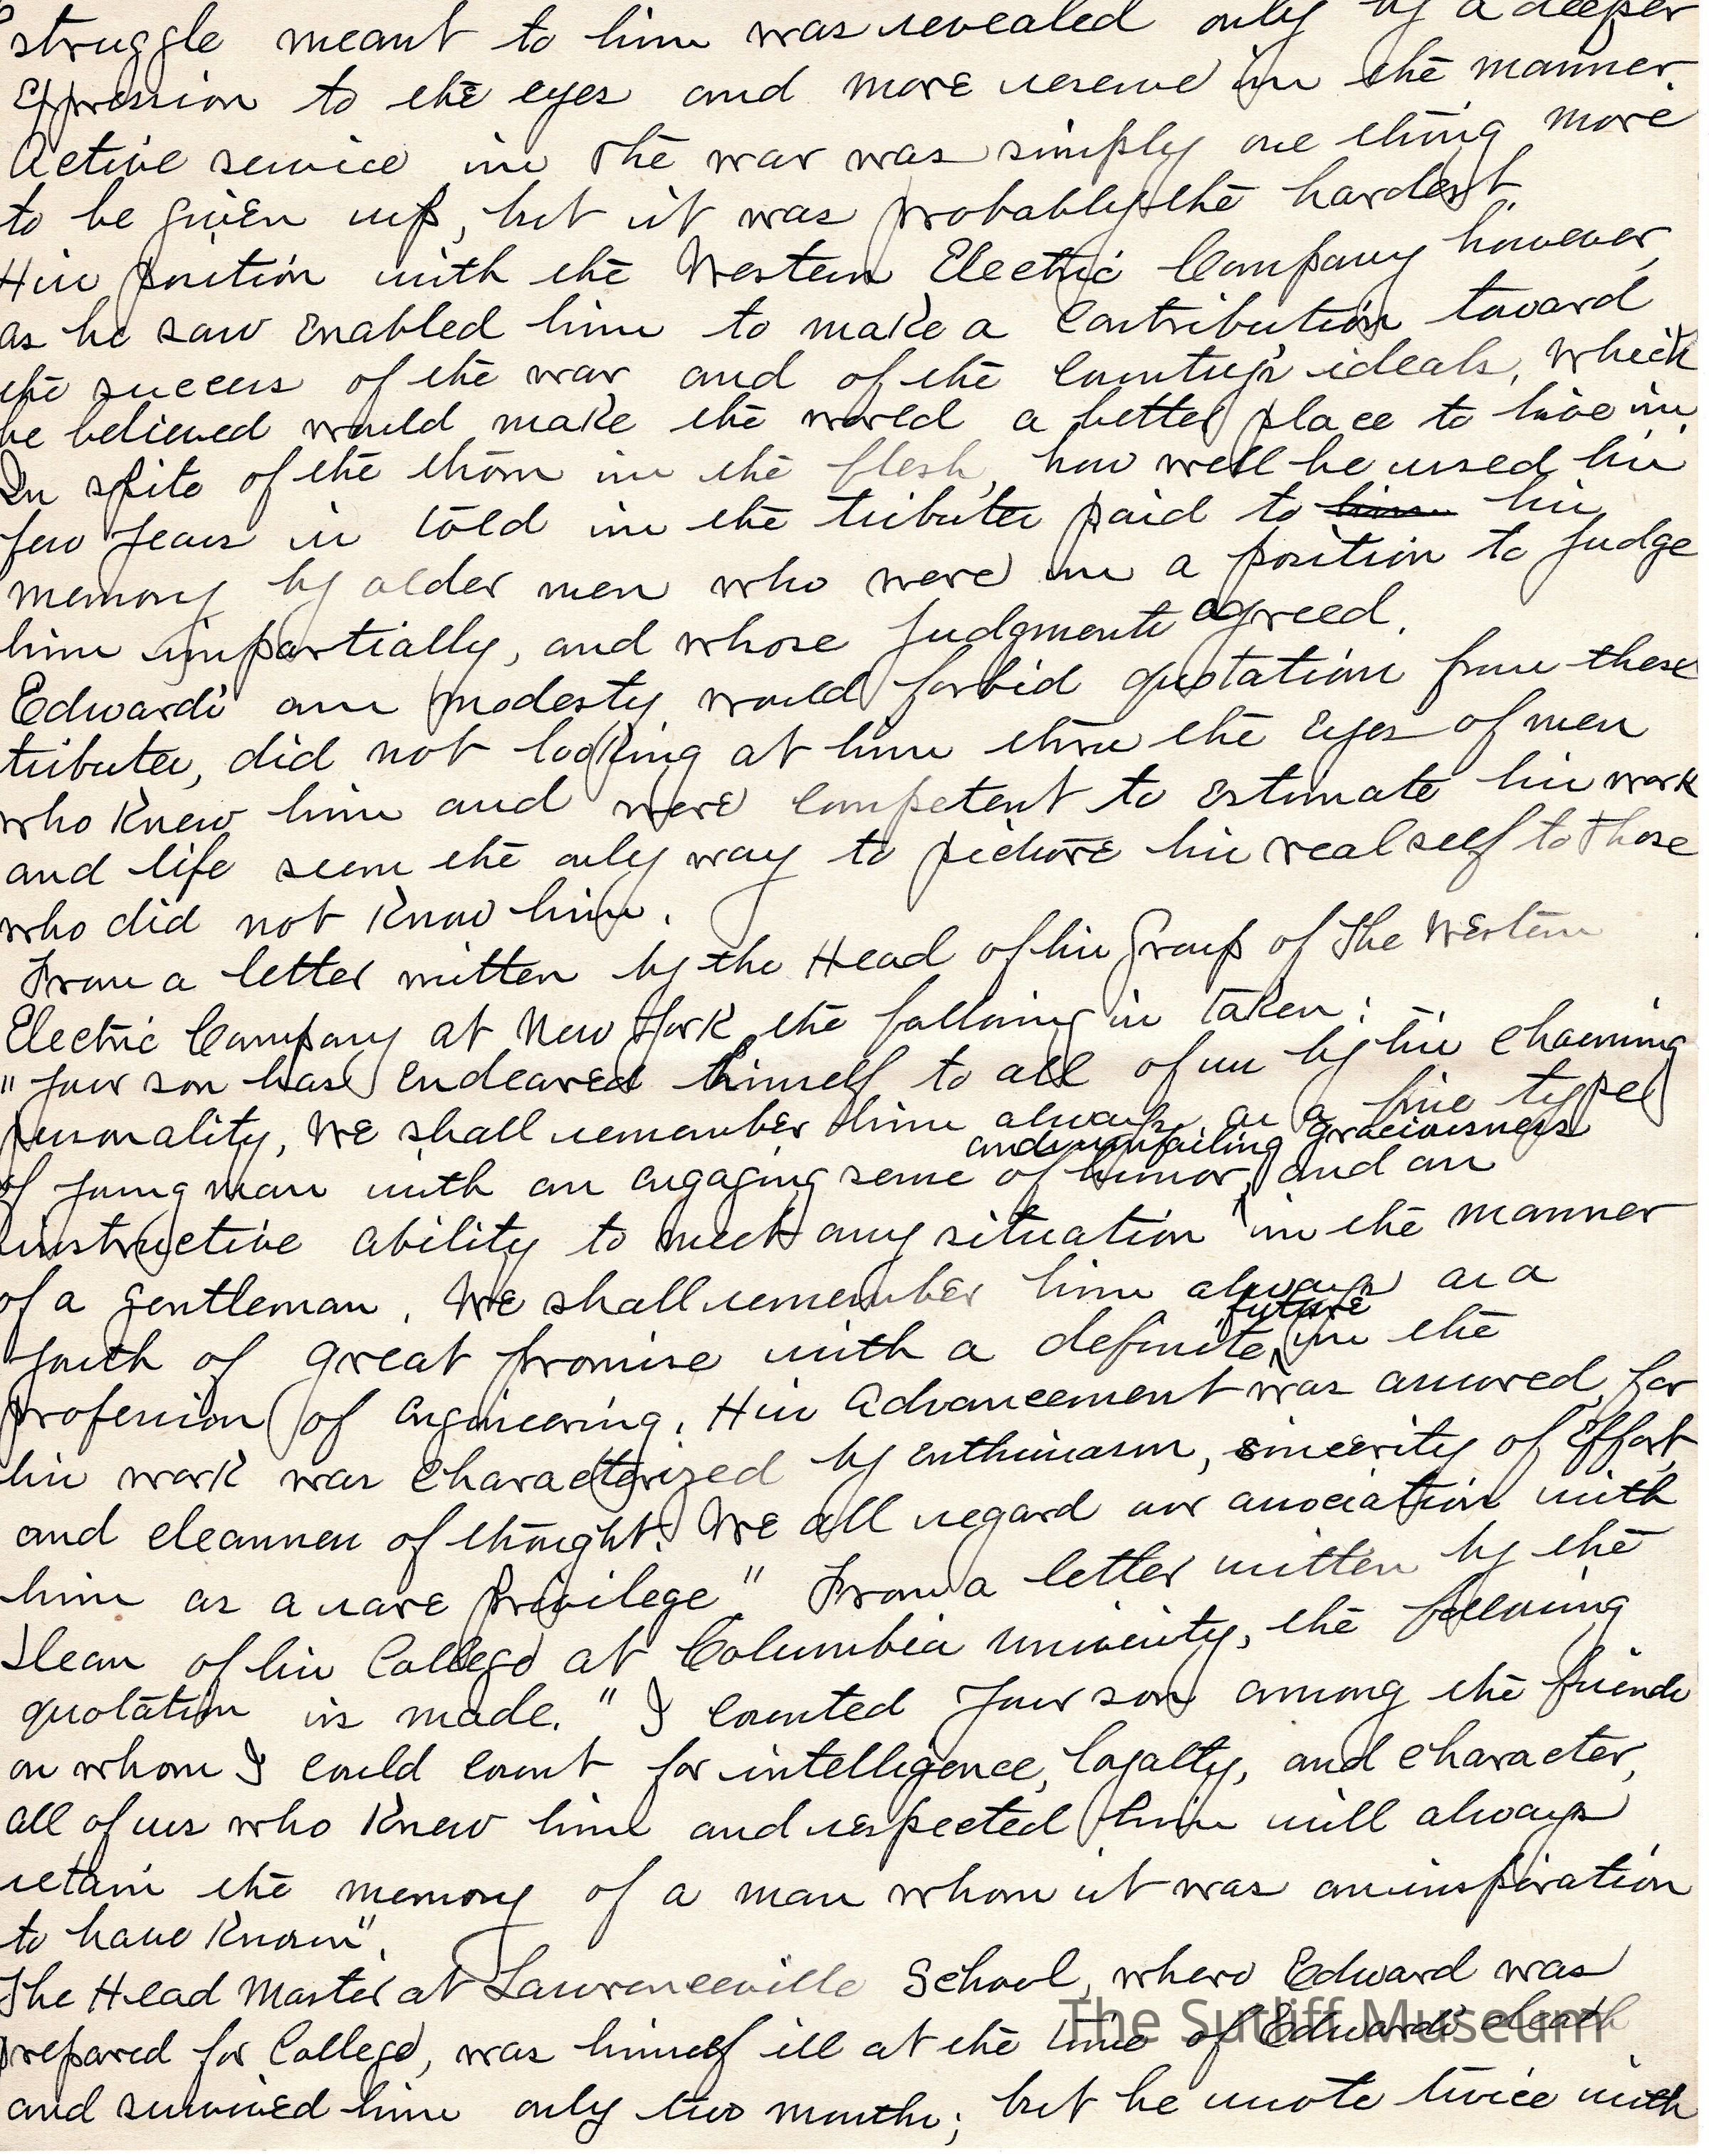 struggle meant to him was revealed only by a deeper
Expression to the eyes and more reserve in the manner.
Active service in the war was simply one thing more
to be given up, but it was probably the hardest.
His position with the Western Electric Company however,
as he saw enabled him to make a contribution toward
the success of the war and of the country's ideals, which
he believed would make the world a better place to live in.
In spite of the thorn in the flesh, how well he used his
few years is told in the tributes paid to him his
memory by older men who were in a position to judge
him impartially, and whose judgments agreed.
Edward's own modesty would forbid quotation from these
tributes, did not looking at him thru the eyes of men
who knew him and were competent to estimate his work
and life seem the only way to picture his real self to those
who did not know him.
From a letter written by the Head of his Group of The Western
Electric Company at New York, the following is taken:
"Your son has endeared himself to all of us by his charming
personality, We shall remember him always as a fine type
and unfailing graciousness
of young man with an engaging sense of humor, and an
instructive ability to meet any situation in the manner
of a gentleman. We shall remember him always as a
future
youth of great promise with a definite in the
profession of engineering. His advancement was assured, for
his work was characterized by enthusiasm, sincerity of effort,
and cleanness of thought. We all regard our association with
him as a rare privilege" From a letter written by the
Dean of his College at Columbia University, the following
quotation is made. "I counted your son among the friends
on whom I could count for intelligence, loyalty, and character,
all of us who knew him and respected him will always
retain the memory of a man whom it was an inspiration
to have known".
The Head Master at Lawrenceville School, where Edward was
prepared for College, was himself ill at the time of Edward's death
The Sutliff Museum
and survived him only two months; but he wrote twice with